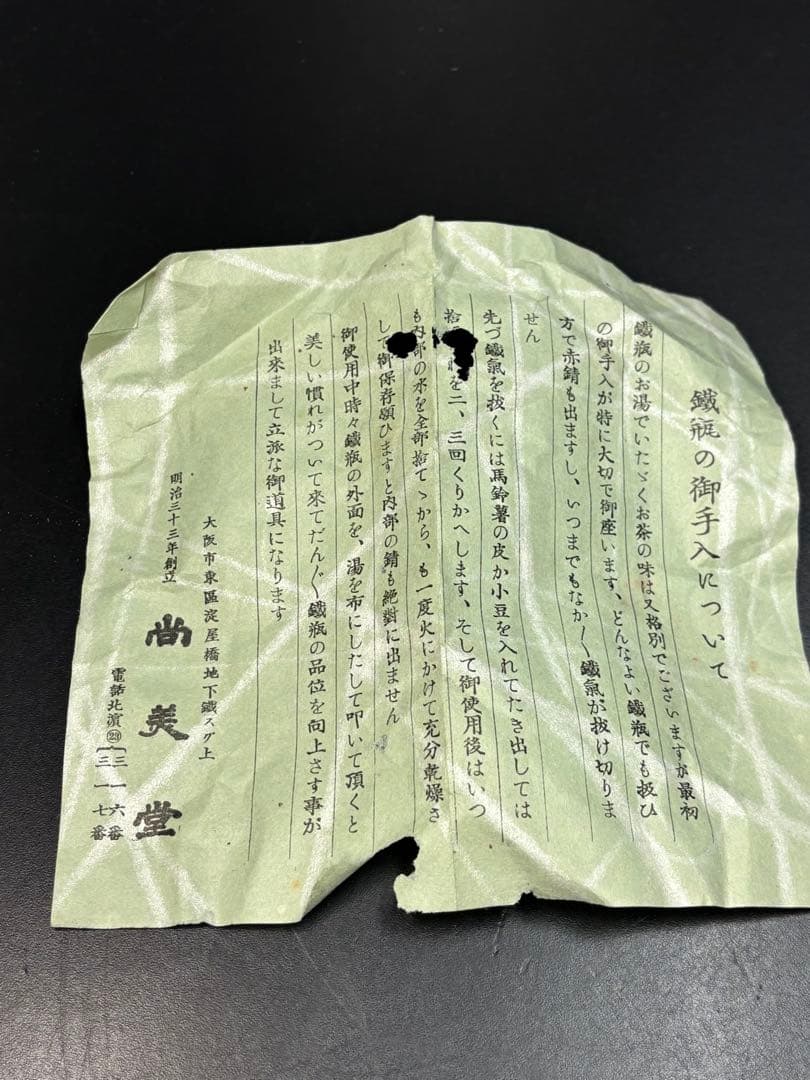 鐵瓶の御手入について
鐵瓶のお湯でいたゞくお茶の味は又格別でございますが最初
の御手入が特に大切で御座います、どんなよい鐵瓶でも扱ひ
方で赤錆も出ますし、いつまでもなか〳〵鐵氣が抜け切りま
せん
先づ鐵氣を抜くには馬鈴薯の皮か小豆を入れてたき出しては
捨 を二、三回くりかへします、そして御使用後はいつ
も内部の水を全部捨てゝから、も一度火にかけて充分乾燥さ
して御保存願ひますと内部の錆も絶對に出ません
御使用中時々鐵瓶の外面を、湯を布にしたして叩いて頂くと
美しい慣れがついて来てだん〴〵鐵瓶の品位を向上さす事が
出来まして立派な御道具になります
大阪市東區淀屋橋地下鐵スグ上
明治三十三年創立 尚美堂
電話北濱㉓ 三一一六番
三一一七番